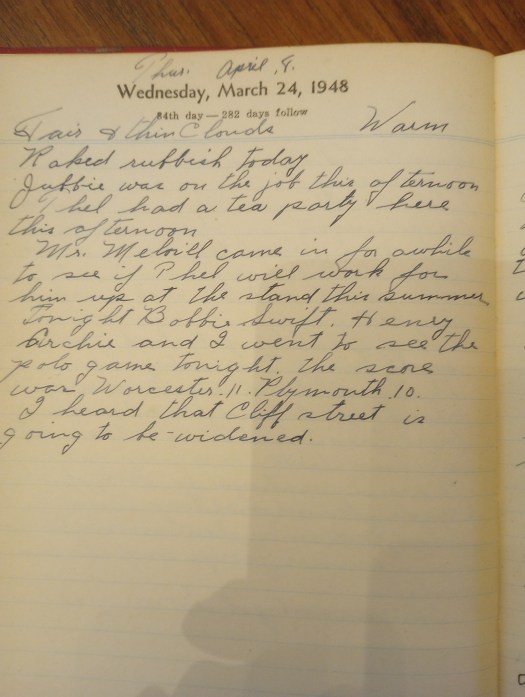 Thus. April, 8.
Wednesday, March 24, 1948
84th day — 282 days follow
Fair & thin Clouds Warm
Raked rubbish today
Jubbie was on the job this afternoon
Phel had a tea party here
this afternoon
Mr. Melvill came in for awhile
to see if Phel will work for
him up at the stand this summer
Tonight Bobbie Swift. Henry
Archie and I went to see the
polo game tonight. the score
was, Worcester. 11. Plymouth. 10.
I heard that Cliff street is
going to be widened.